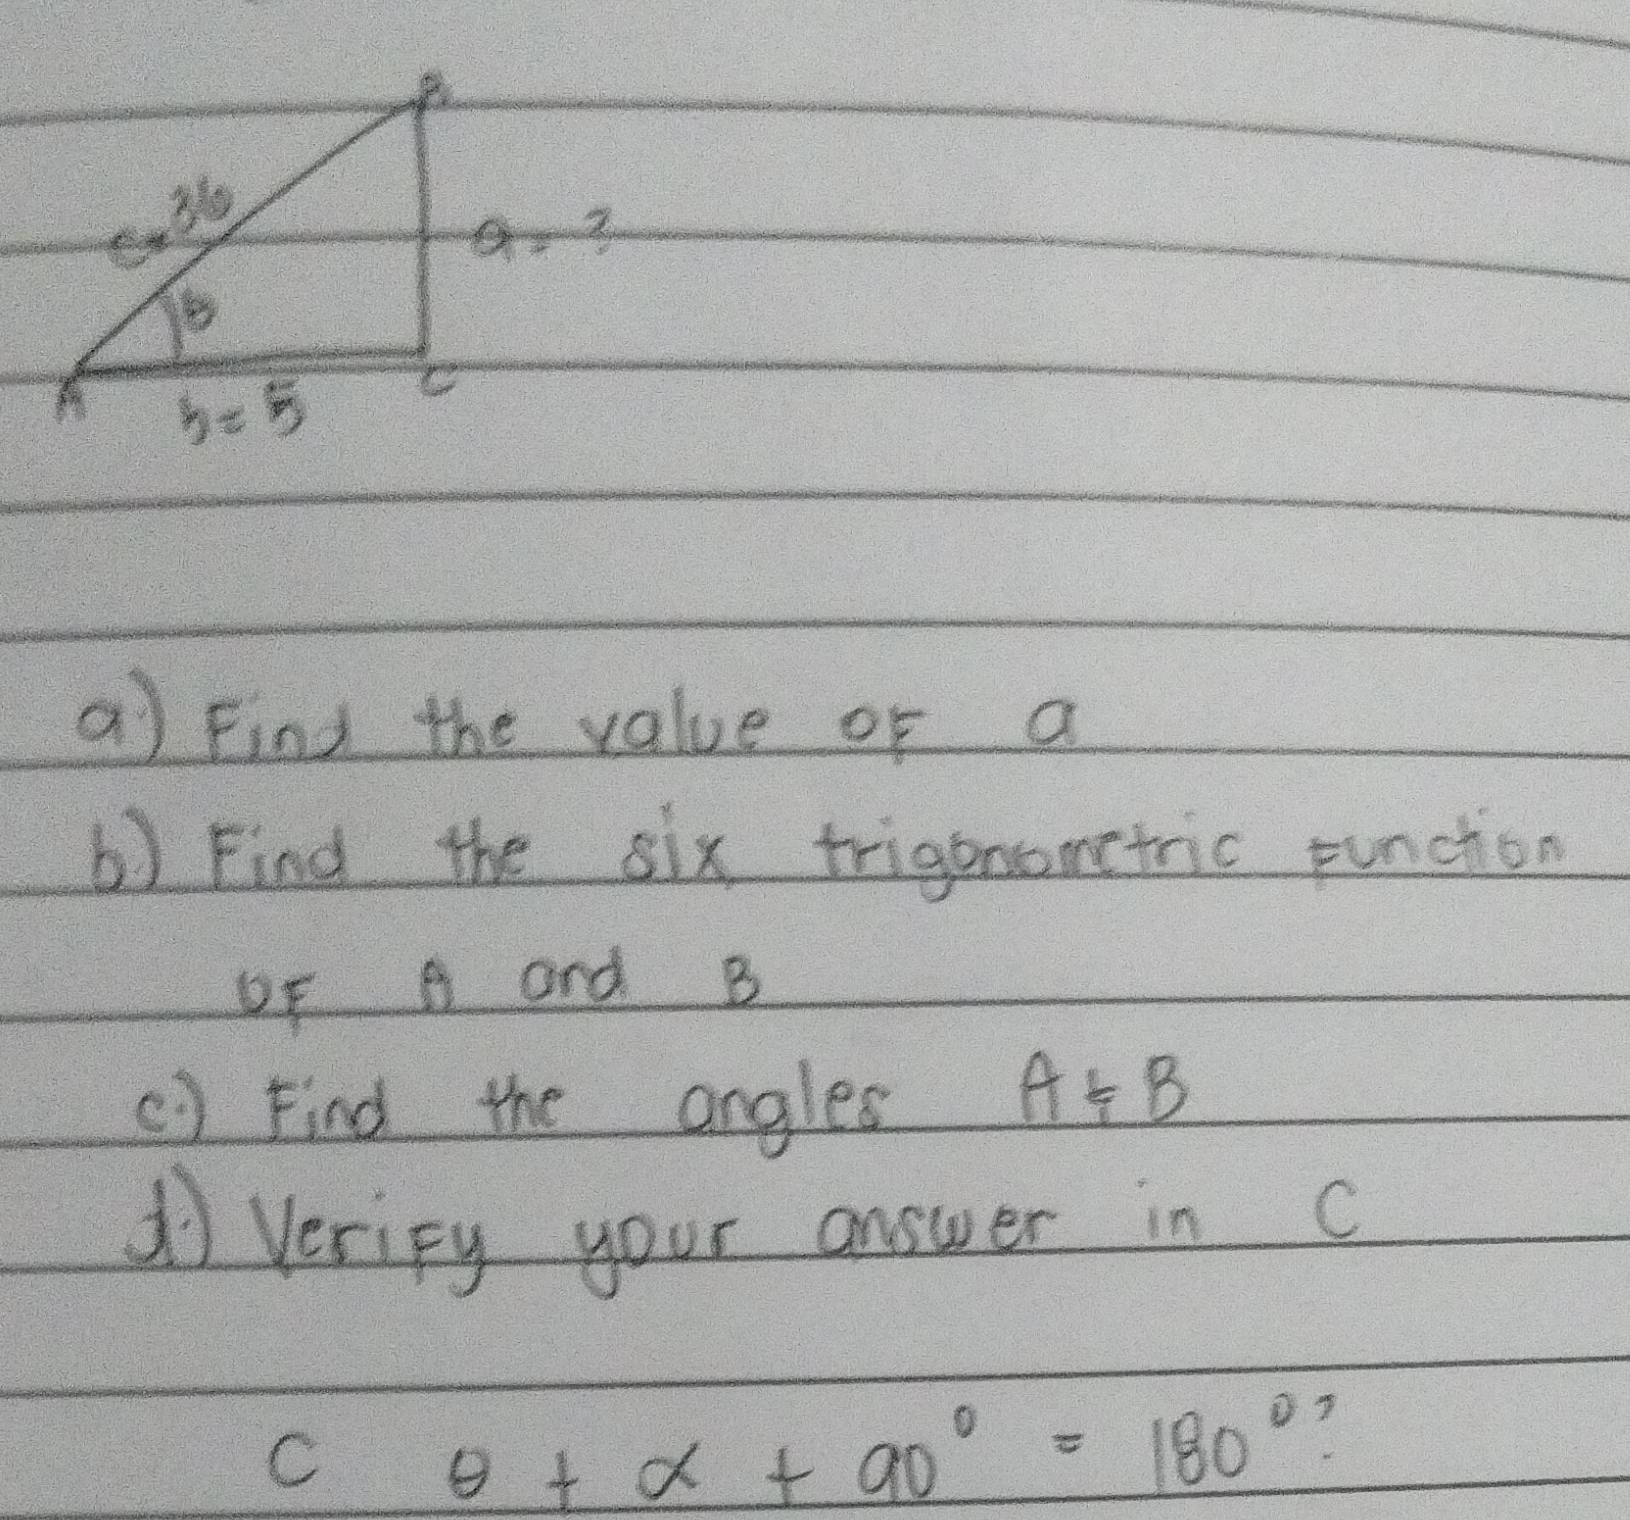 B
c = 36
a = ?
θ
A
C
b = 5
a.) Find the value of a
b.) Find the six trigonometric function
of A and B
c.) Find the angles A & B
d.) Verify your answer in C
C θ + α + 90° = 180°?